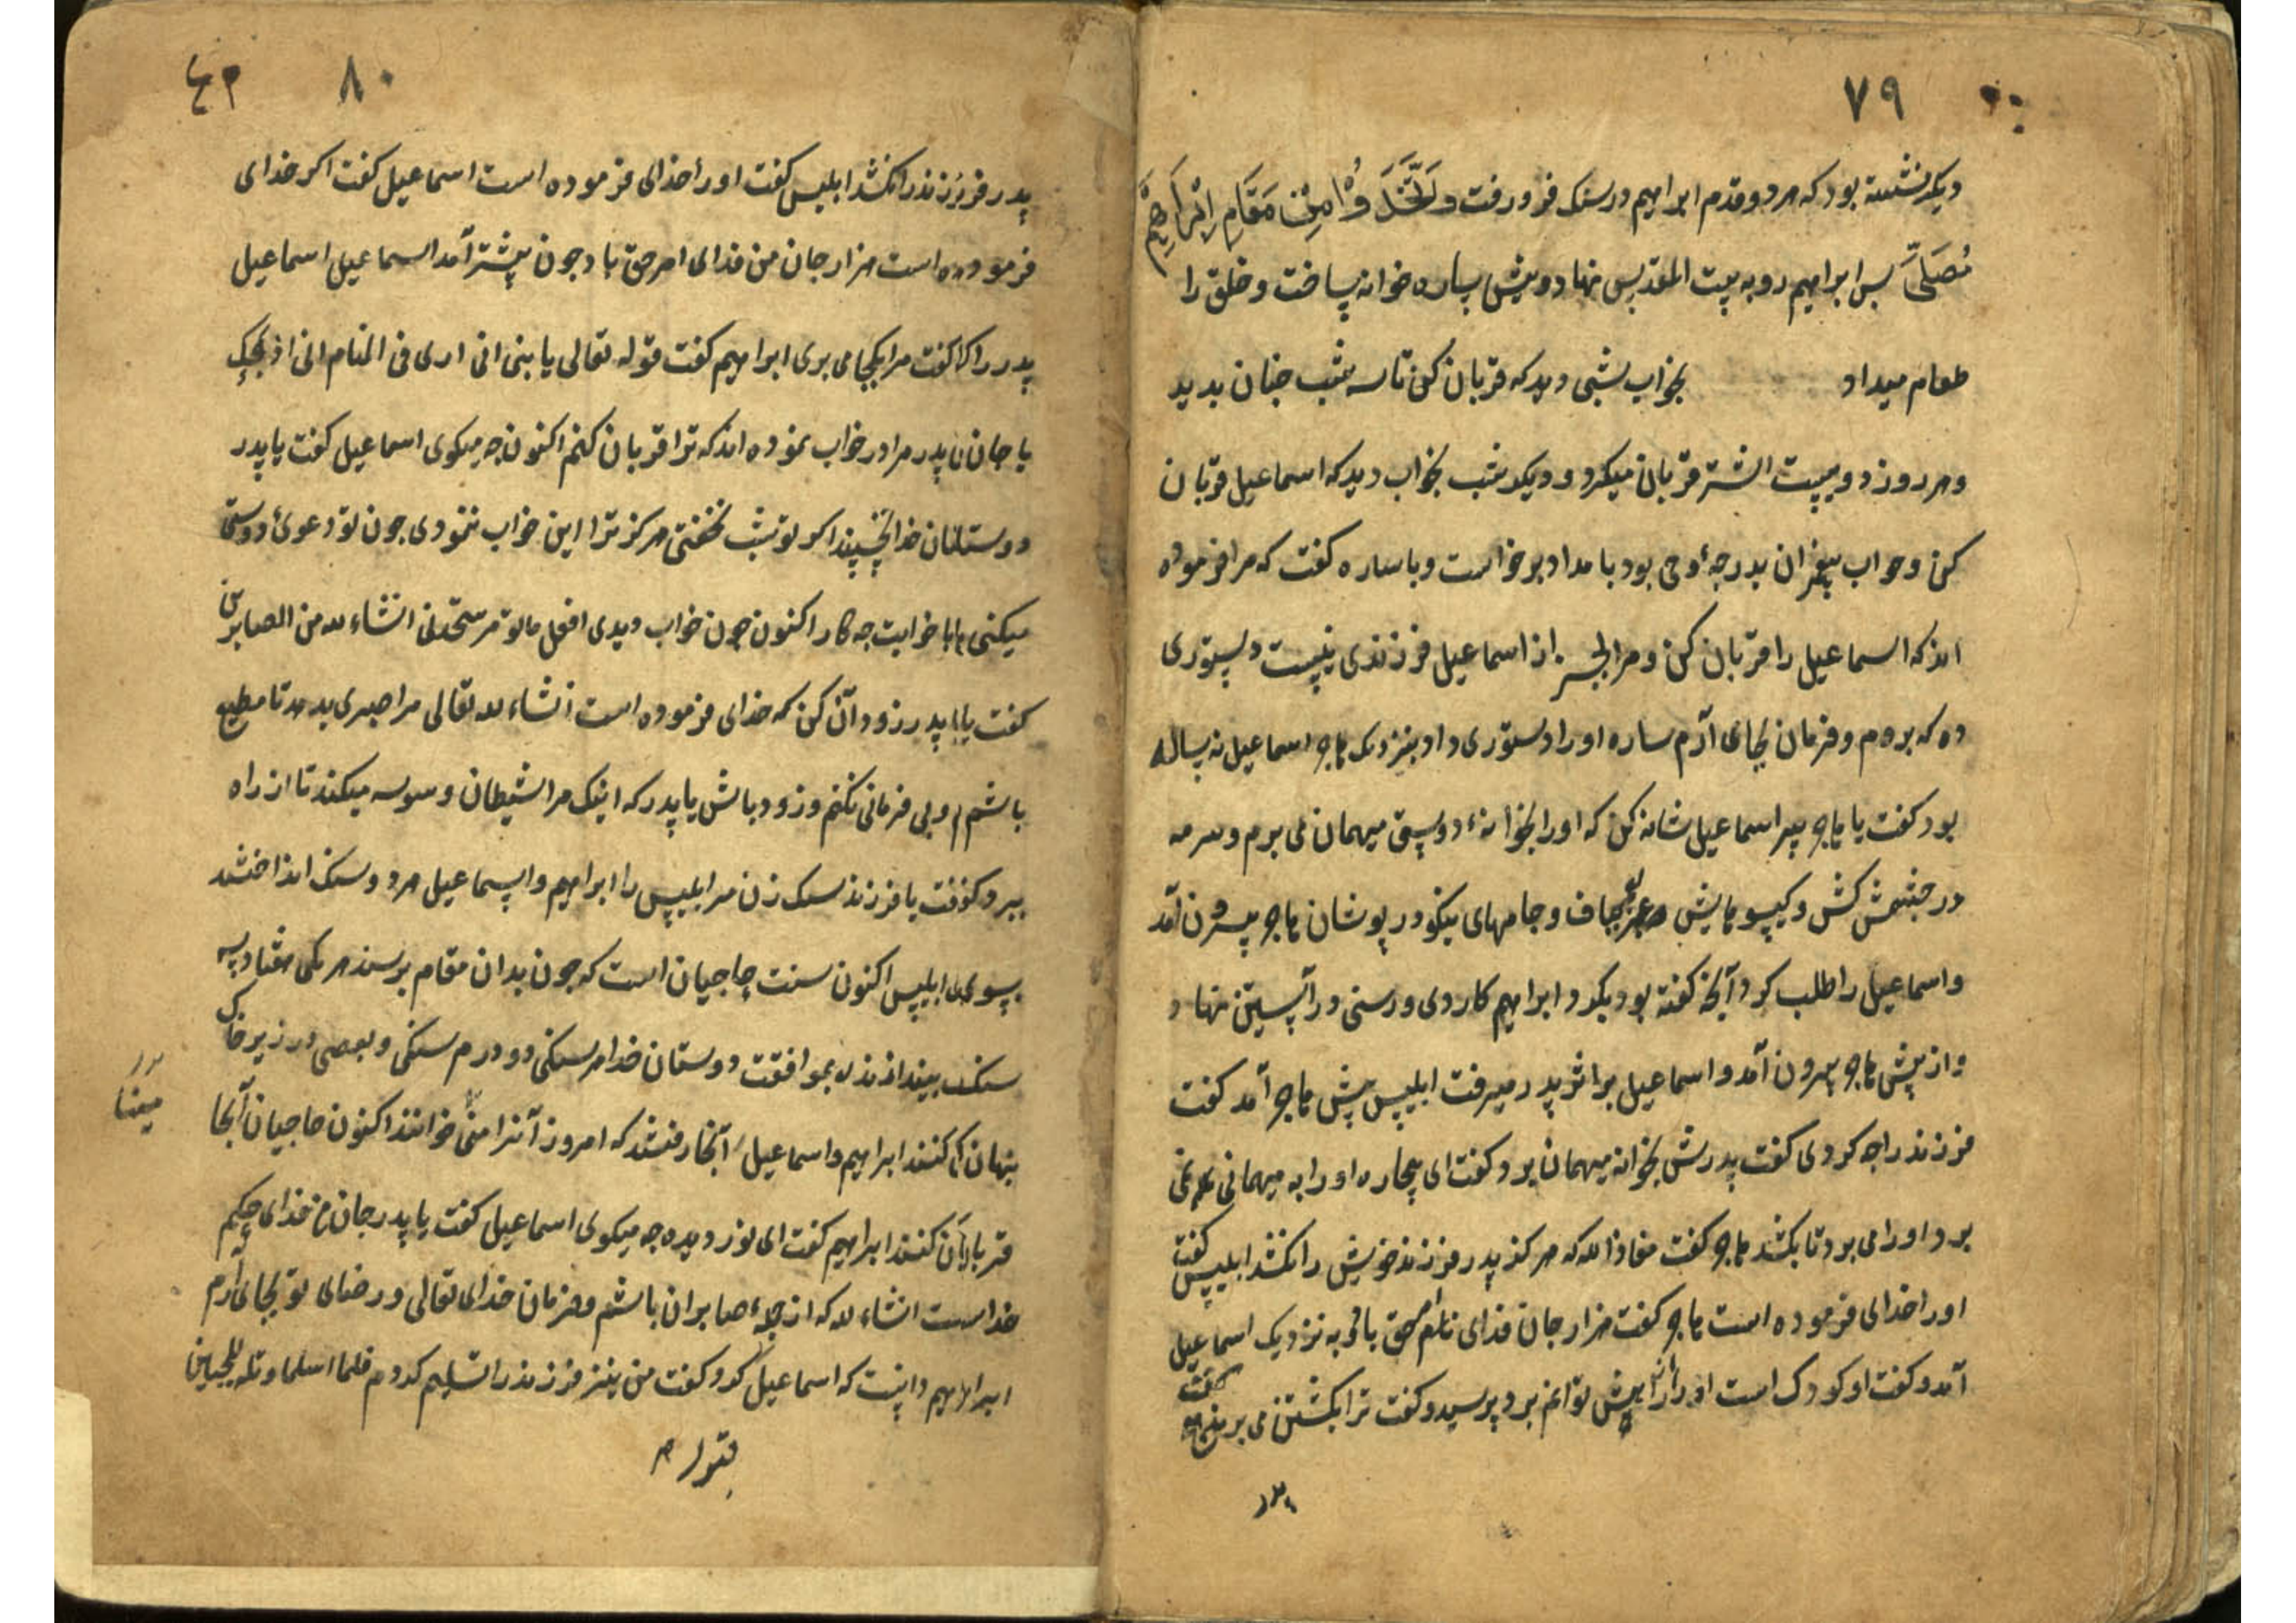 ٧٩
دیکر نشسته بود که هر دو قدم ابراهیم در سنک فرو رفت وَتَّخَذُوْا مِنْ مَقَامِ اِبْرَاهِیْمَ
مُصَلَّیً بس ابراهیم رو به بیت المقدس نهاد و پیش ساره خوانه ساخت و خلق را
طعام میداد بخواب بشبی دید که قربان کن تا سه شب جنان بدید
و هر روز دویست اشتر قربان میکرد و دیکر شب بخواب دید که اسماعیل قربان
کن و خواب پیغمبران بدرجهٔ وحی بود بامداد برخواست و با ساره کفت که مرا فرموده
اند که اسماعیل را قربان کن و مرا بجز از اسماعیل فرزندی نیست دستوری
ده که بروم و فرمان بجای آرم ساره او را دستوری داد بنزدیک هاجر اسماعیل نه ساله
بود کفت یا هاجر سر اسماعیل شانه کن که او را بخوانهٔ دوستی میهمان می برم و سرمه
در جشمش کش و کیسو هایش بباف و جامهای نیکو در پوشان هاجر بیرون آمد
و اسماعیل را طلب کرد آنچه کفته بود بکرد و ابراهیم کاردی و رسنی در آستین نهاد
و از پیش هاجر بیرون آمد و اسماعیل بر اثر پدر میرفت ابلیس پیش هاجر آمد کفت
فرزند را جه کردی کفت پدرش بخوانه میهمان برد کفت ای بیچاره او را به میهمانی نمی
برد او را می برد تا بکشد هاجر کفت معاذ الله که هرکز پدر فرزند خویش را نکشد ابلیس کفت
او را خدای فرموده است هاجر کفت هزار جان فدای امر حق باد به نزدیک اسماعیل
آمد و کفت او کودک است او را از پیش توانم برد پرسید و کفت ترا بکشتن می برند کفت
٨٠
پدر فرزند را نکشد ابلیس کفت او را خدای فرموده است اسماعیل کفت اکر خدای
فرموده است هزار جان من فدای امر حق باد جون پیشتر آمد اسماعیل اسماعیل
پدر را کفت مرا بکجا می بری ابراهیم کفت قوله تعالی یا بنی انی اری فی المنام انی اذبحک
یا جان پدر مرا در خواب نموده اند که ترا قربان کنم اکنون جه میکوی اسماعیل کفت یا پدر
دوستان خدا نخسپند اکر تو شب نخفتی هرکز ترا این خواب ننمودی جون تو دعویٔ دوستی
میکنی با خوابت جه کار اکنون جون خواب دیدی افعل ما تؤمر ستجدنی انشاء الله من الصابرین
کفت یا پدر زود آن کن که خدای فرموده است انشاء الله تعالی مرا صبری بدهد تا مطیع
باشم و بی فرمانی نکنم و زود باش یا پدر که اینک مرا شیطان وسوسه میکند تا از راه
ببرد کفت یا فرزند سنک زن مر ابلیس را ابراهیم و اسماعیل هر دو سنک انداختند
بسوی ابلیس اکنون سنت حاجیان است که جون بدان مقام برسند هر یکی هفتاد
سنک بیندازند بموافقت دوستان خدا هر سنکی دو درم سنکی و بعضی در زیر خاک
بنهان کنند ابراهیم و اسماعیل آنجا رفتند که امروز آنرا منی خوانند اکنون حاجیان آنجا
قربان کنند ابراهیم کفت ای نور دیده جه میکوی اسماعیل کفت یا پدر جان من فدای حکم
خداست انشاء الله که از جملهٔ صابران باشم و فرمان خدای تعالی و رضای تو بجای آرم
ابراهیم دانست که اسماعیل کرد و کفت من نیز فرزند را تسلیم کردم فلما اسلما و تله للجبین